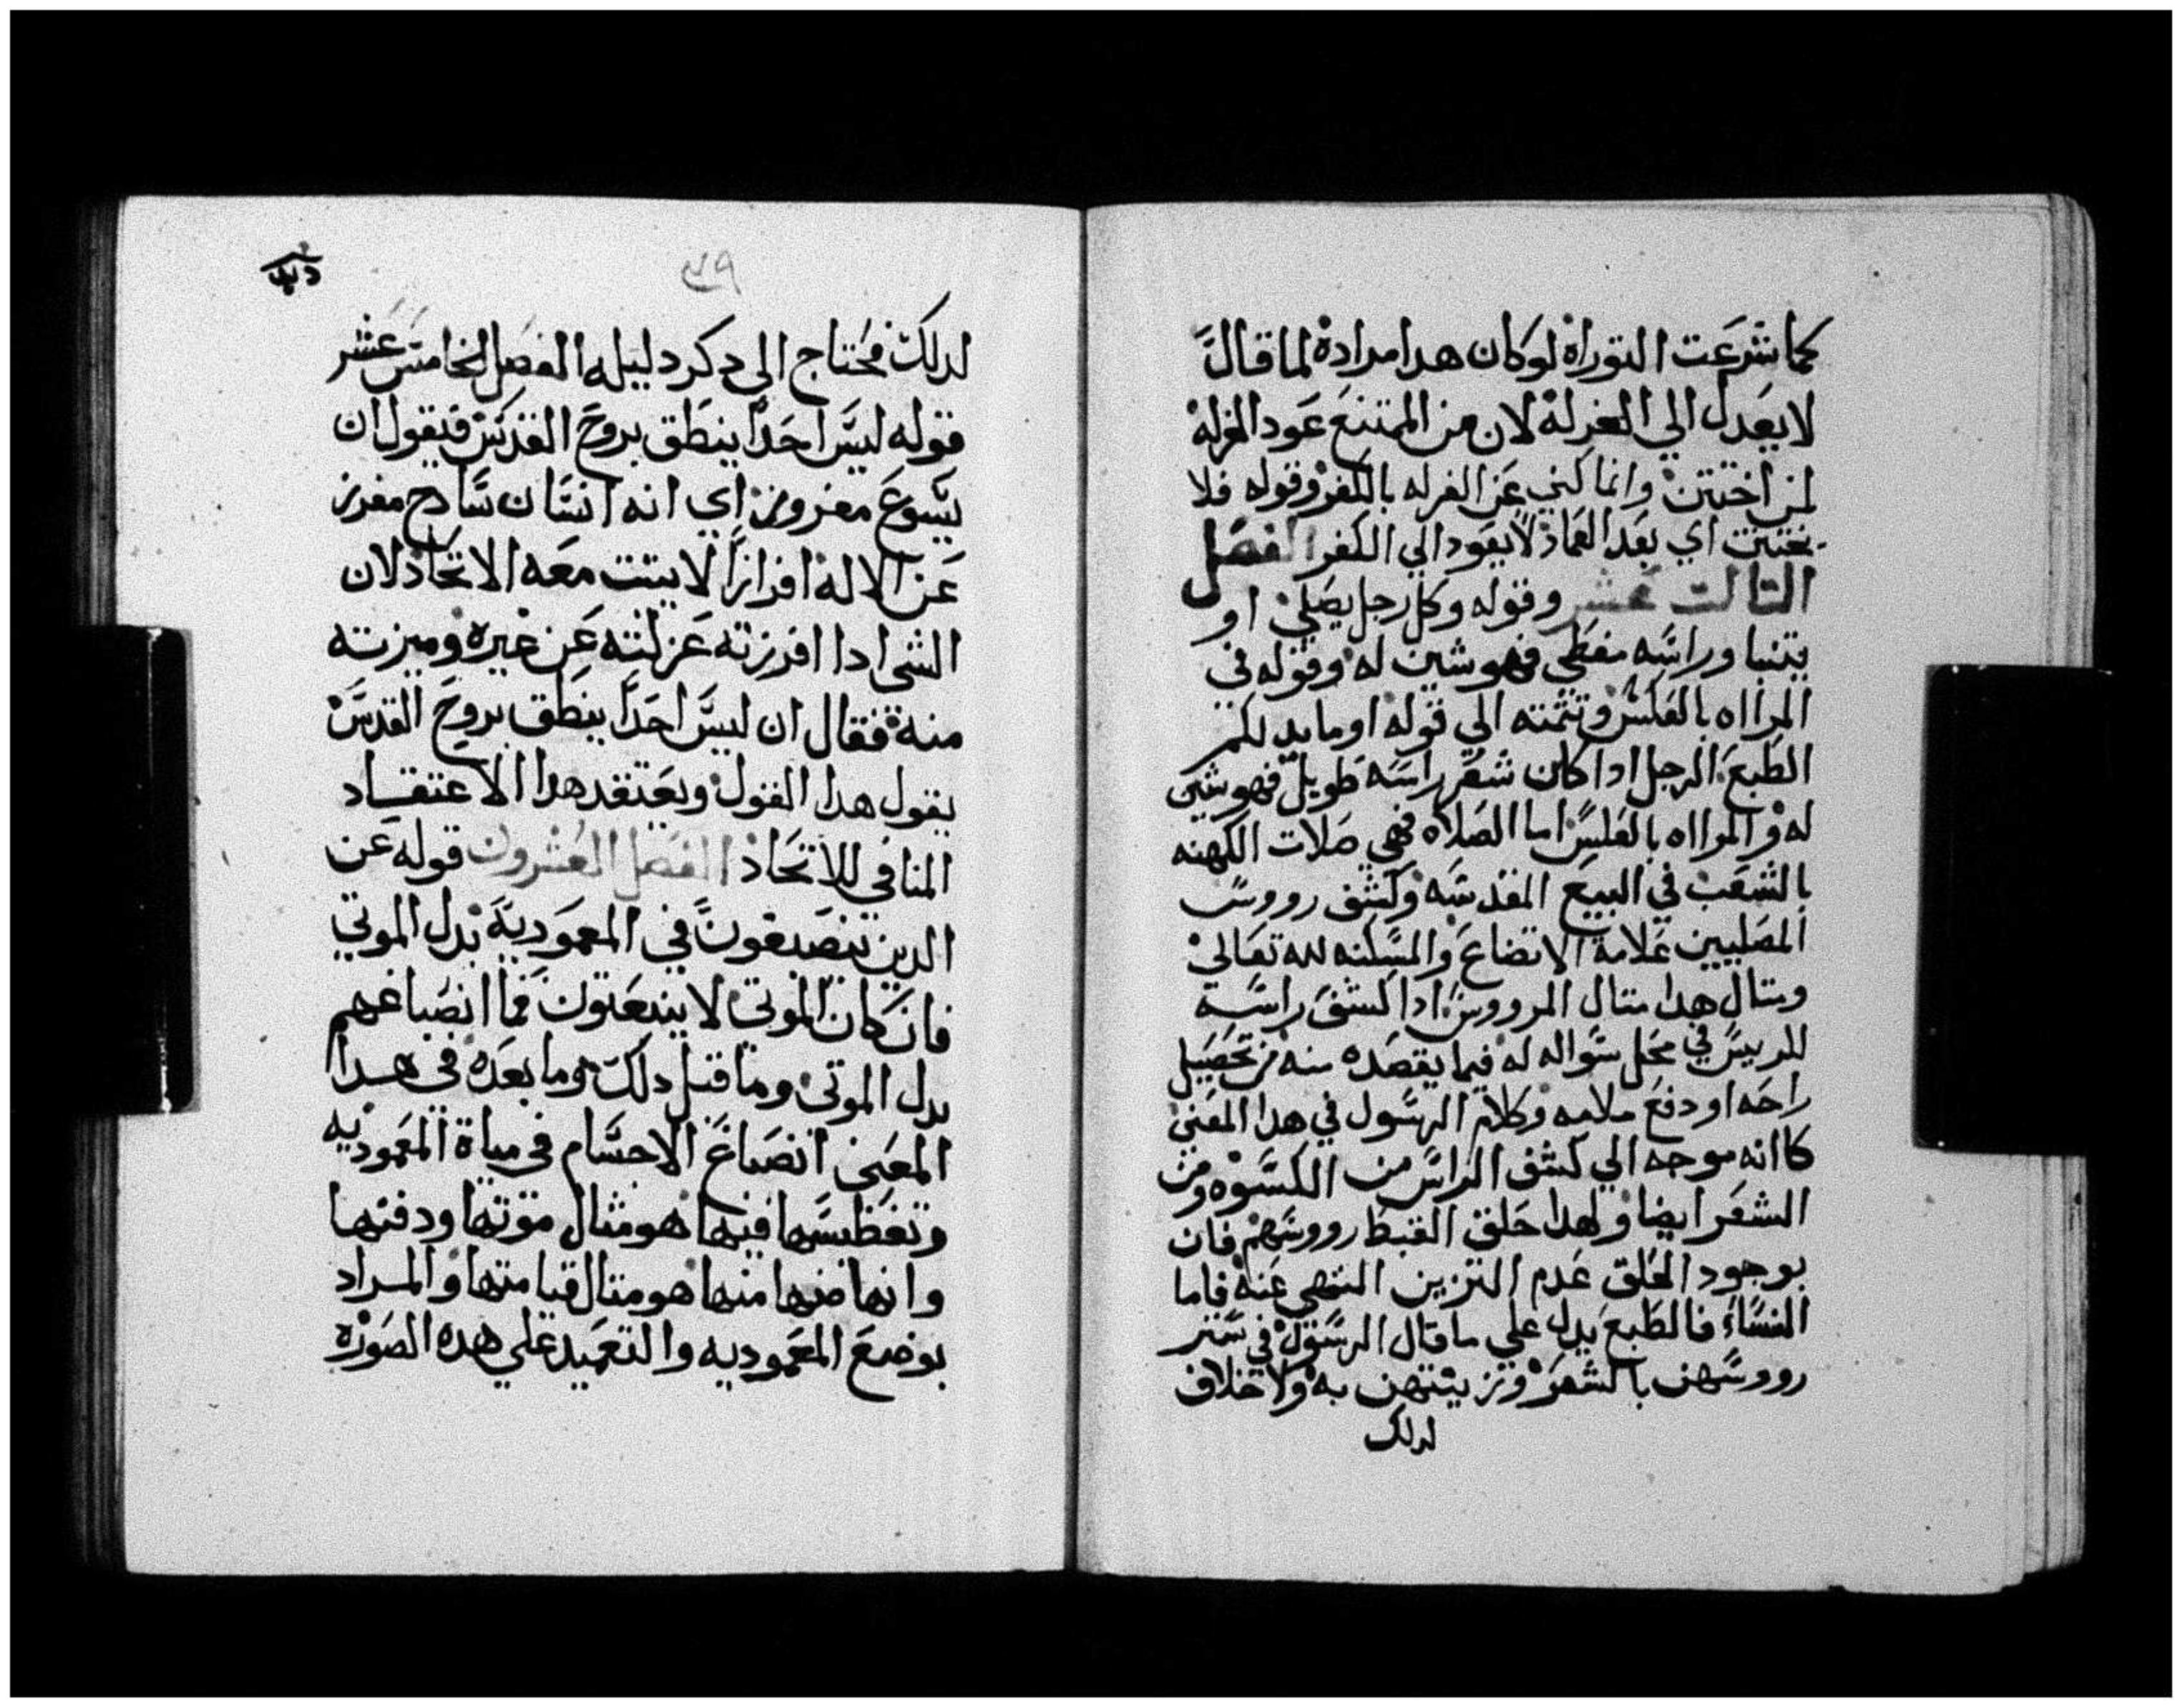 كما شرعت التوراة لو كان هدا مرادة لما قال
لا يعدل الي الغرلة لان من الممتنع عود الغرله
لمن اختتن وانما كني عن الغرله بالكفر وقوله فلا
يختتن اي بعد العماد لا يعود الي الكفر الفصل
التالت عشر وقوله وكل رجل يصلي او
يتنبا وراسه مغطي فهو شين له وقوله في
المرااه بالعكس وتتمته الي قوله او ما يدلكم
الطبع الرجل ادا كان شعر راسه طويل فهو شين
له والمرااه بالعكس اما الصلاه فهي صلات الكهنه
بالشعب في البيع المقدسه وكشف رووس
المصليين علامة الاتضاع والمسكنه لله تعالي
ومتال هدا متال المرووس ادا كشف راسه
للرييس في محل سواله له فيما يقصده منه من تحصيل
راحه او دفع ملامه وكلام الرسول في هدا المعني
كاانه موجه الي كشف الراس من الكسوه ومن
الشعر ايضا ولهدا حلق القبط رووسهم فان
بوجود الحلق عدم التزين المنهي عنه فاما
النساء فالطبع يدل علي ما قال الرسول في ستر
رووسهن بالشعر وتزينهن به ولا خلاف
لدلك
٧٩
لدلك فحتاج الى دكر دليله الفصل الخامس عشر
قوله ليس احدا ينطق بروح القدس فيقول ان
يسوع مفروز اي انه انسان سادج مفرز
عن الاله افرازا لا يتبت معه الاتحاد لان
الشى ادا افرزته عزلته عن غيره وميزته
منه فقال ان ليس احدا ينطق بروح القدس
يقول هدا القول ويعتقد هدا الاعتقاد
المنافي للاتحاد الفصل العشرون قوله عن
الدين ينصبغون في المعموديه بدل الموتي
فان كان الموتي لا ينبعتون فما انصباغهم
بدل الموتى وما قبل دلك وما بعده في هدا
المعنى انصباغ الاجسام في مياة المعموديه
وتغطيسها فيها هو مثال موتها ودفنها
وانهاضها منها هو متال قيامتها والمراد
بوضع المعموديه والتعميد علي هده الصوره